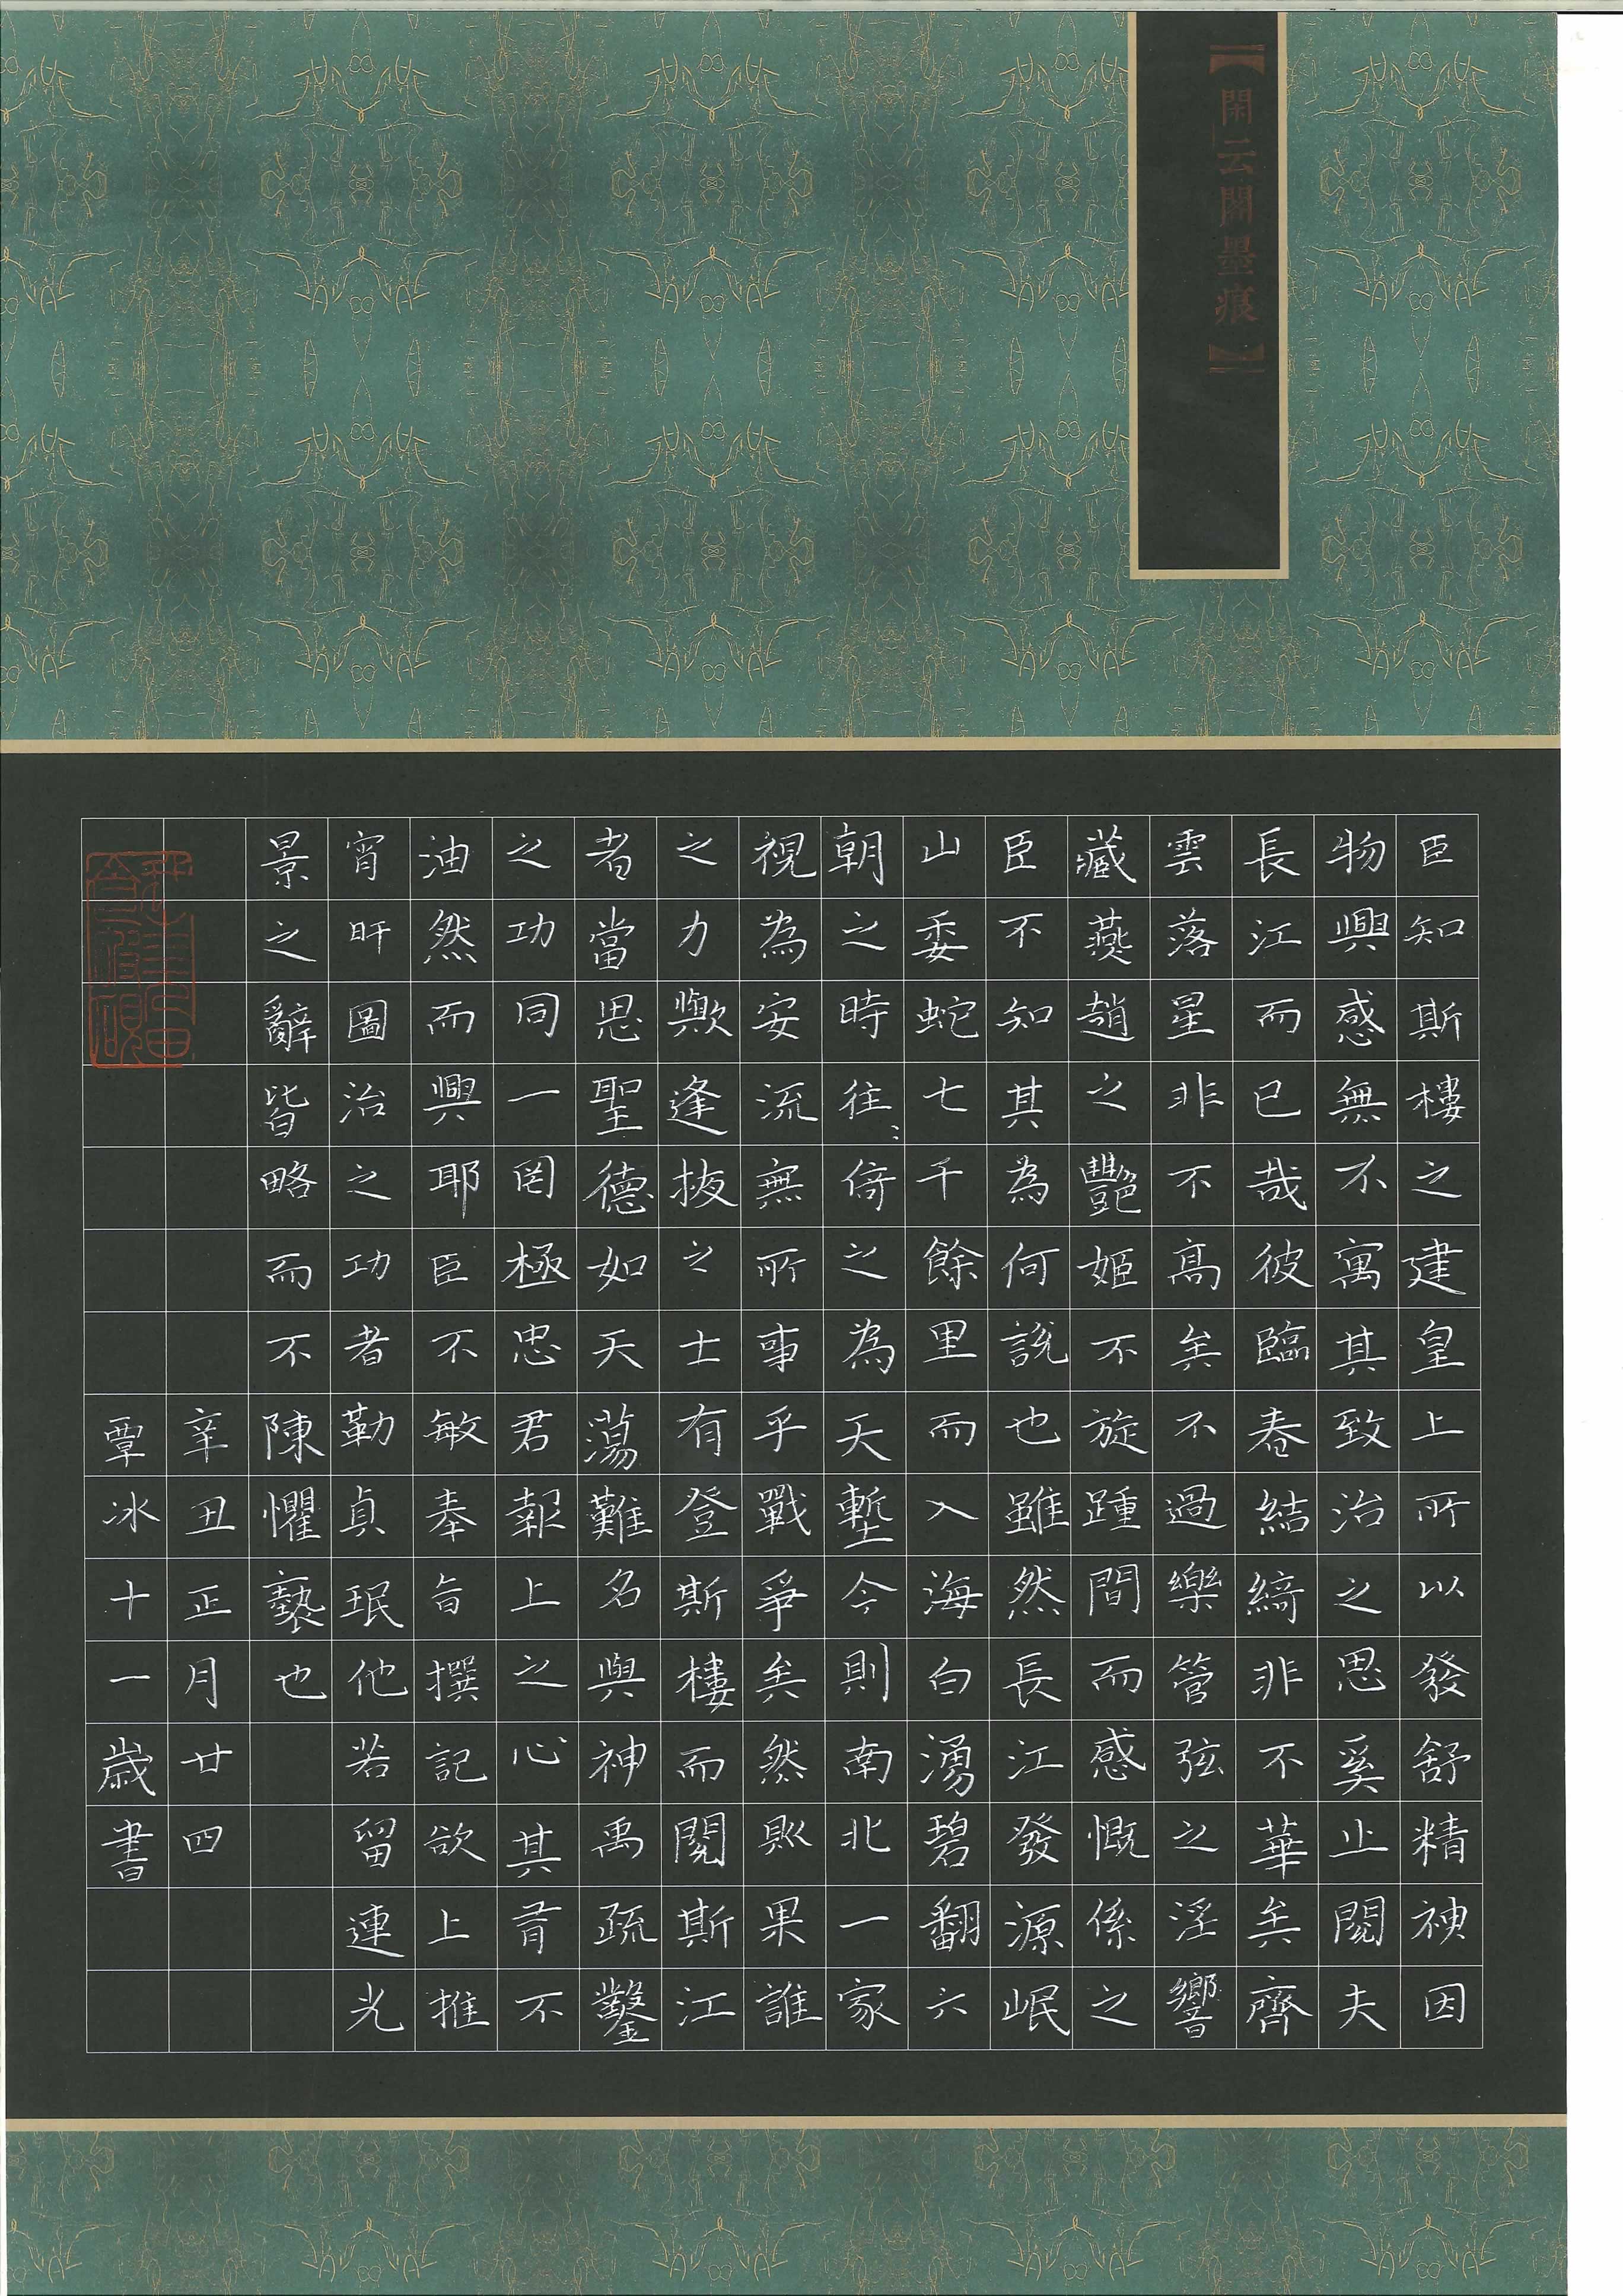 【閑云閣墨痕】
臣知斯樓之建皇上所以發舒精神因
物興感無不寓其致治之思奚止閱夫
長江而已哉彼臨春結綺非不華矣齊
雲落星非不高矣不過樂管弦之淫響
藏燕趙之艷姬不旋踵間而感慨係之
臣不知其為何說也雖然長江發源岷
山委蛇七千餘里而入海白湧碧翻六
朝之時往〻倚之為天塹今則南北一家
視為安流無所事乎戰爭矣然則果誰
之力歟逢掖之士有登斯樓而閱斯江
者當思聖德如天蕩難名與神禹疏鑿
之功同一罔極忠君報上之心其有不
油然而興耶臣不敏奉旨撰記欲上推
宵旰圖治之功者勒貞珉他若留連光
景之辭皆略而不陳懼褻也
辛丑正月廿四
覃冰十一歲書